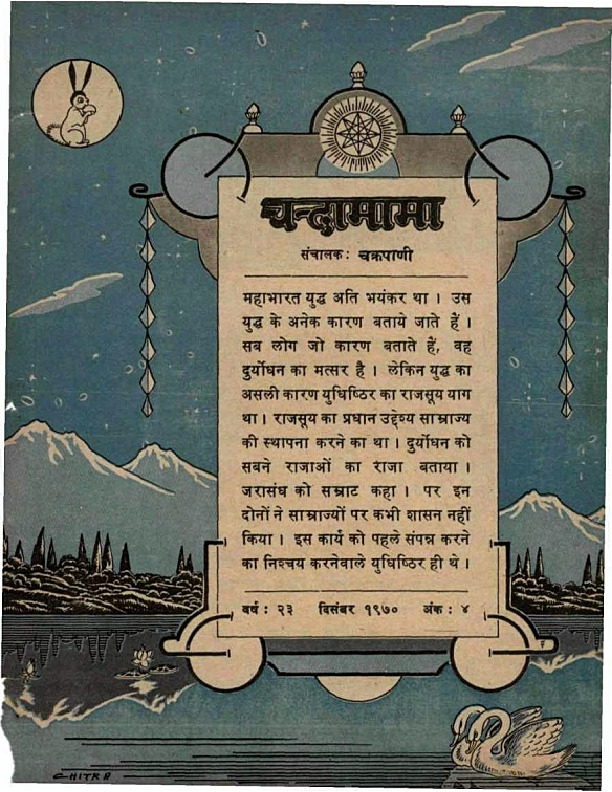 चन्दामामा
संचालक: चक्रपाणी
महाभारत युद्ध अति भयंकर था । उस
युद्ध के अनेक कारण बताये जाते हैं ।
सब लोग जो कारण बताते हैं, वह
दुर्योधन का मत्सर है । लेकिन युद्ध का
असली कारण युधिष्ठिर का राजसूय याग
था । राजसूय का प्रधान उद्देश्य साम्राज्य
की स्थापना करने का था । दुर्योधन को
सबने राजाओं का राजा बताया ।
जरासंध को सम्राट कहा । पर इन
दोनों ने साम्राज्यों पर कभी शासन नहीं
किया । इस कार्य को पहले संपन्न करने
का निश्चय करनेवाले युधिष्ठिर ही थे ।
वर्ष : २३ दिसंबर १९७० अंक : ४
CHITRA